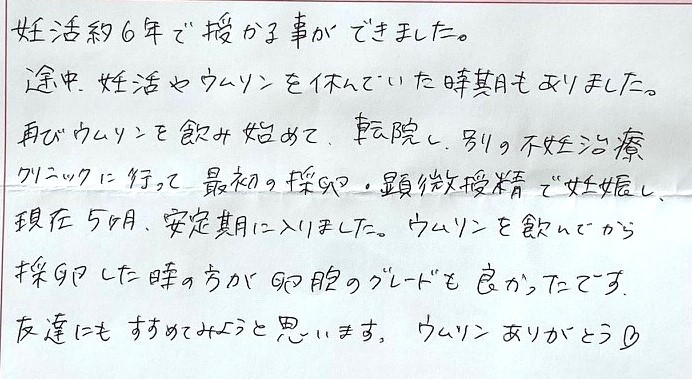 妊活約6年で授かる事ができました。
途中、妊活やウムリンを休んでいた時期もありました。
再びウムリンを飲み始めて、転院し、別の不妊治療
クリニックに行って最初の採卵・顕微授精で妊娠し、
現在5ヶ月、安定期に入りました。ウムリンを飲んでから
採卵した時の方が卵胞のグレードも良かったです。
友達にもすすめてみようと思います。ウムリンありがとう